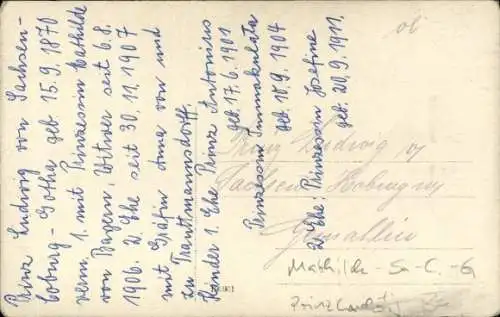 Prinz Ludwig von Sachsen-
Coburg-Gotha geb. 15.9.1870
verm. 1. mit Prinzessin Mathilde
von Bayern, Witwer seit 6.8.
1906. 2. Ehe seit 30.11.1907
mit Gräfin Anna von und
zu Trauttmansdorff.
Kinder 1. Ehe Prinz Antonius
geb. 17.6.1901
Prinzessin Immakulata
geb. 10.9.1904
2. Ehe: Prinzessin Josefine
geb. 20.9.1911.
Prinz Ludwig v
Sachsen Koburg
Gemahlin
Mathilde - Sa-C.-G
Prinz